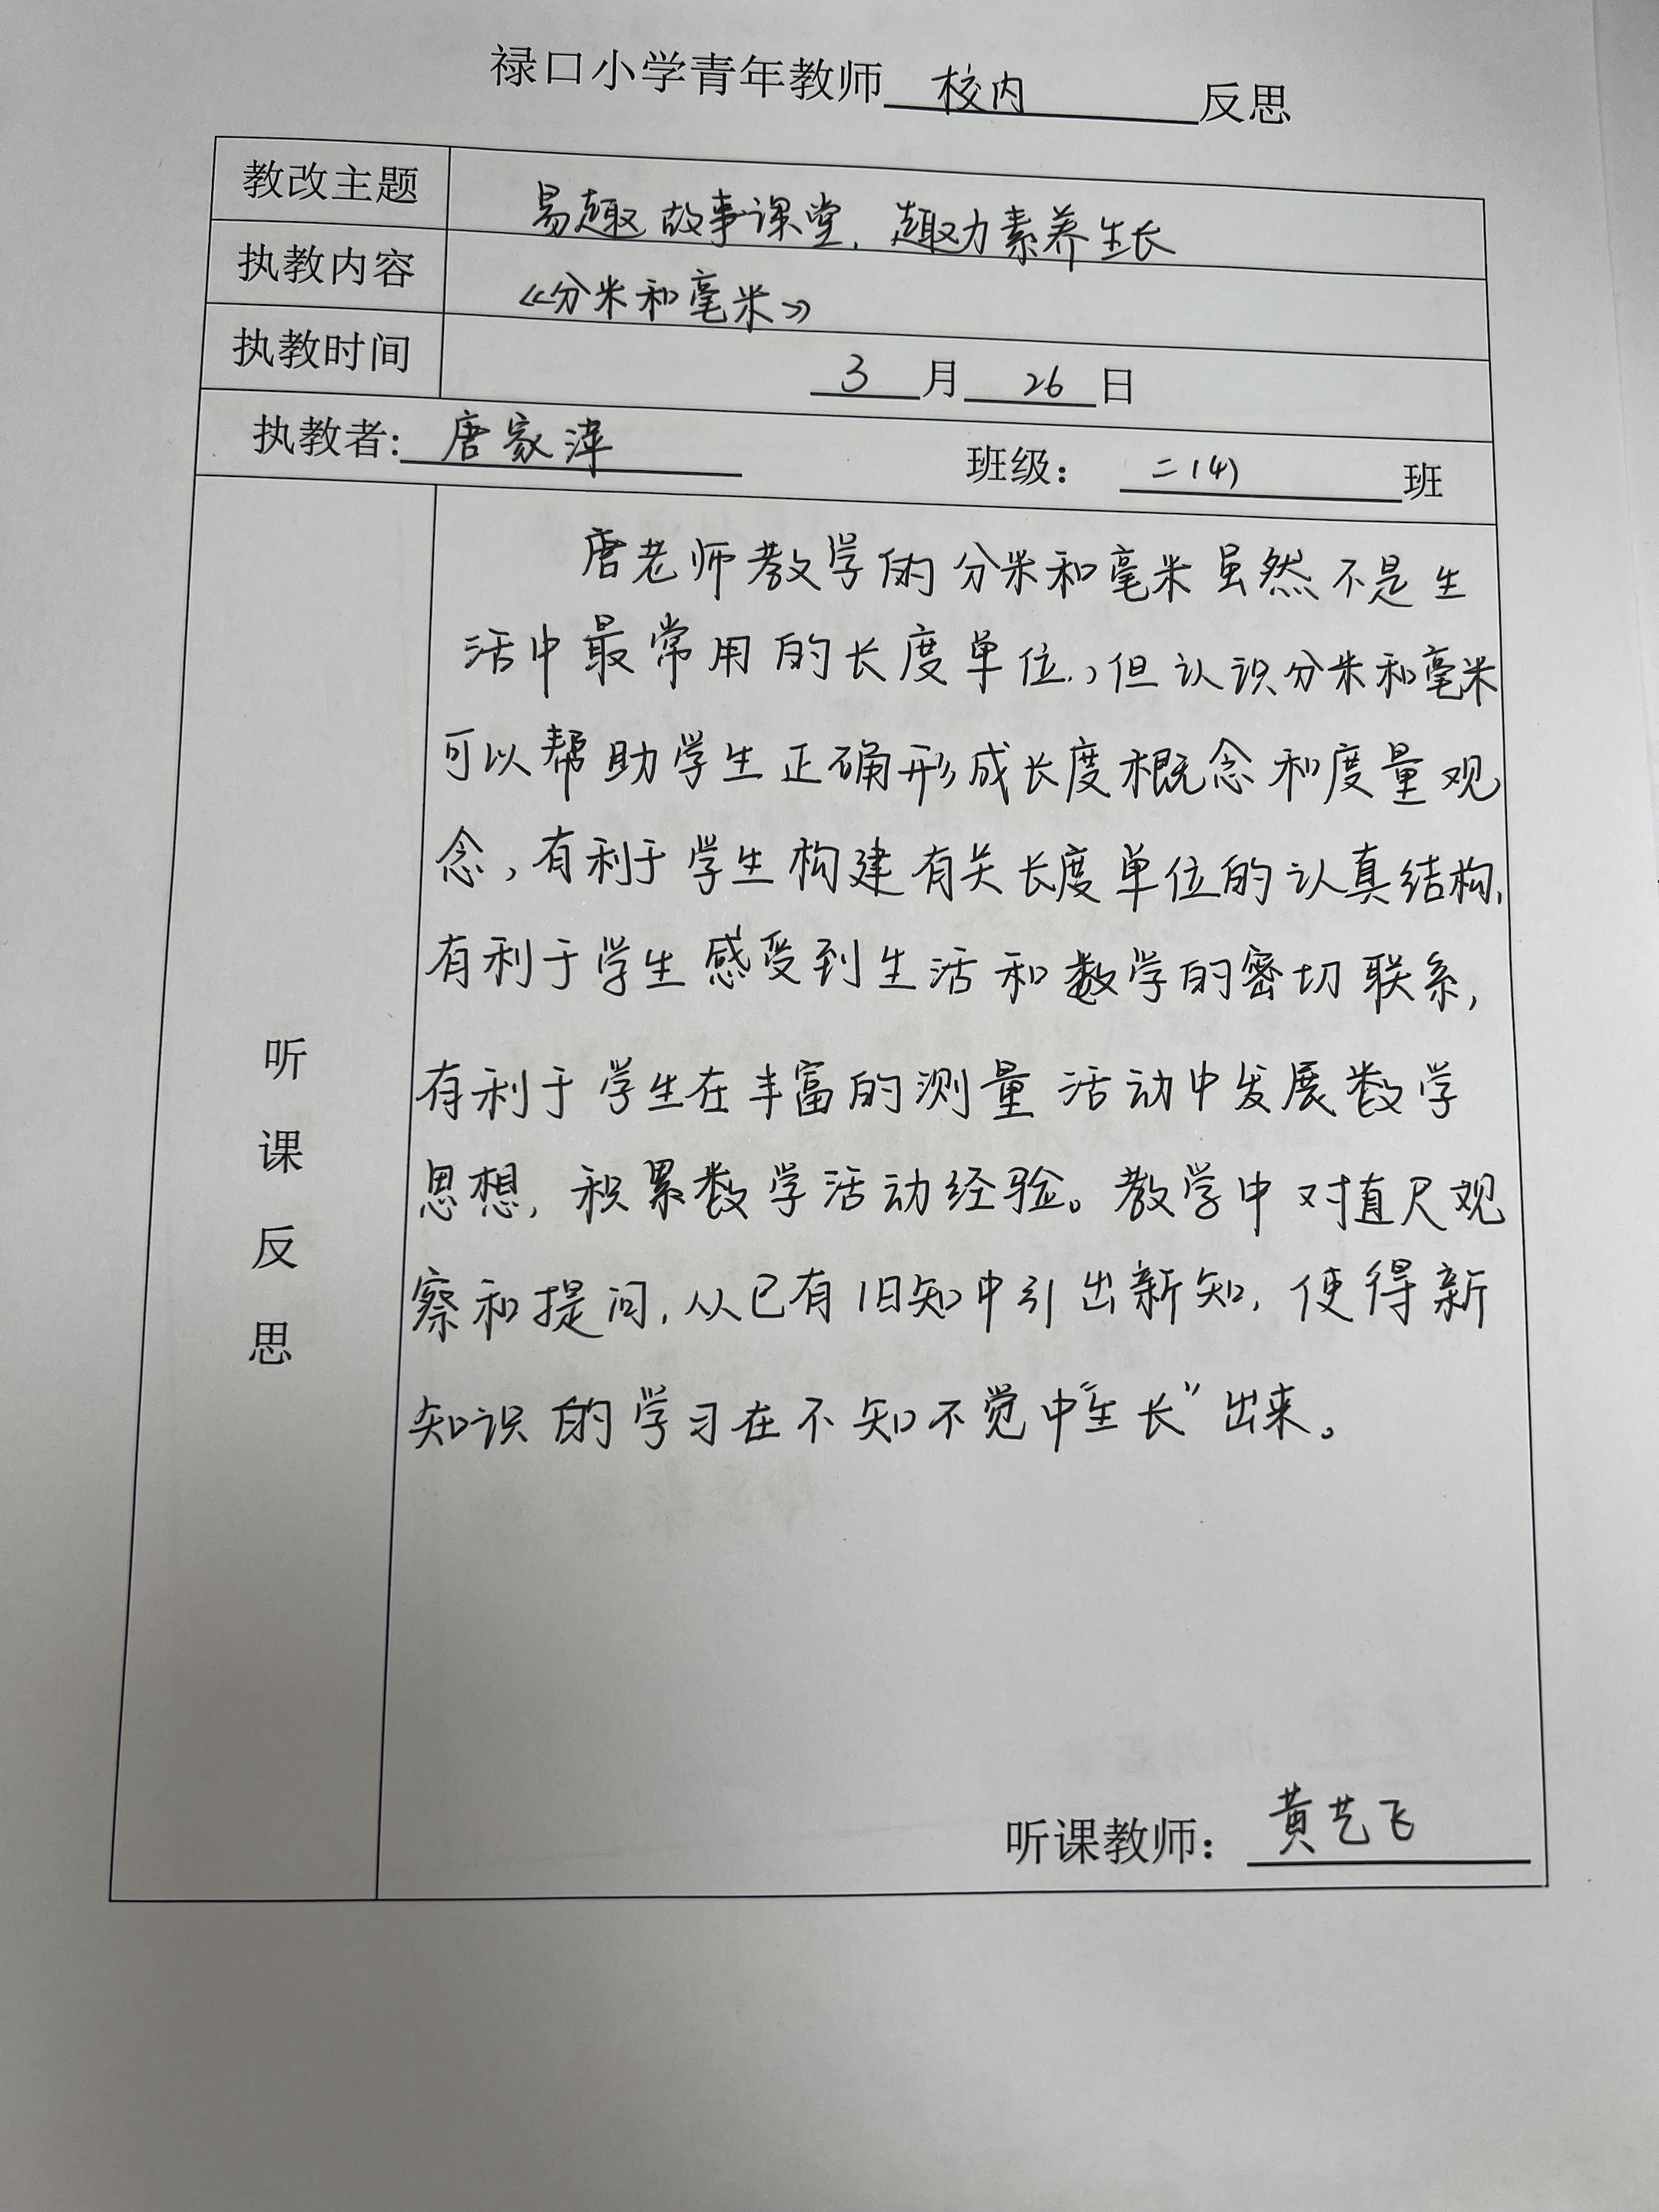 禄口小学青年教师 校内 反思
教改主题 易趣故事课堂，趣力素养生长
执教内容 《分米和毫米》
执教时间 3月26日
执教者：唐家 班级：二(4)班
听课反思
唐老师教学的分米和毫米虽然不是生
活中最常用的长度单位，但认识分米和毫米
可以帮助学生正确形成长度概念和度量观
念，有利于学生构建有关长度单位的认真结构，
有利于学生感受到生活和数学的密切联系，
有利于学生在丰富的测量活动中发展数学
思想，积累数学活动经验。教学中对直尺观
察和提问，从已有旧知中引出新知，使得新
知识的学习在不知不觉中“生长”出来。
听课教师：黄艺飞